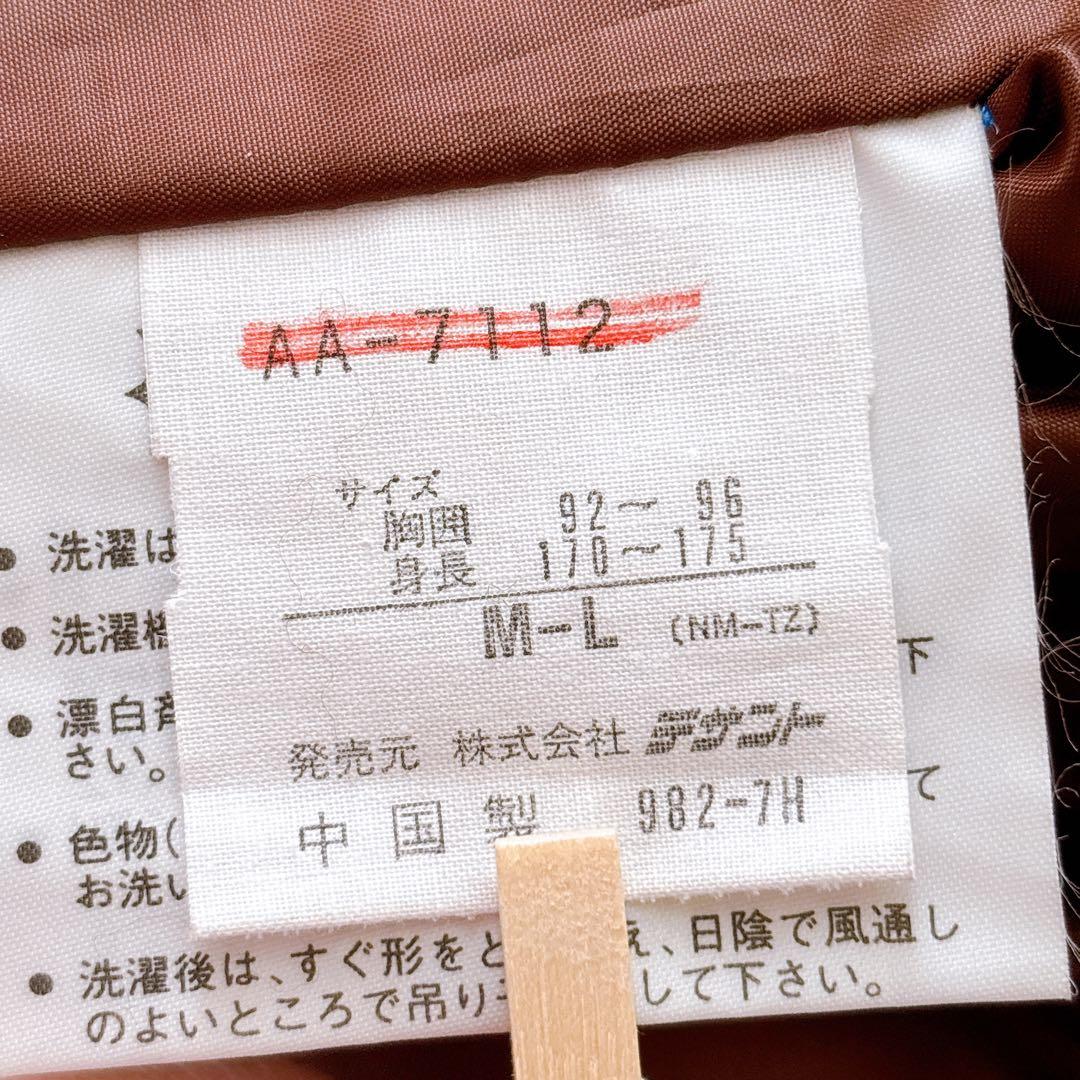 AA-7112
サイズ
胸囲 92〜 96
身長 170〜175
M-L (NM-TZ)
発売元 株式会社 デサント
中国製 982-7H
• 洗濯は
• 洗濯機
下
• 漂白剤
さい。
て
• 色物(
お洗い
• 洗濯後は、すぐ形をと え、日陰で風通し
のよいところで吊り して下さい。